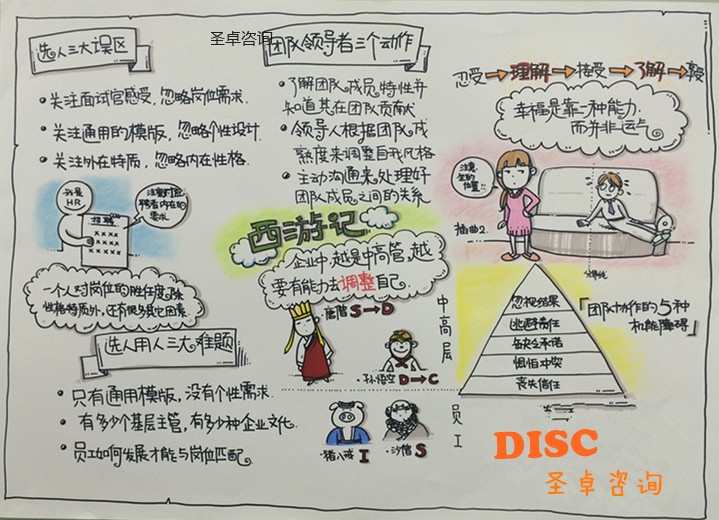 选人三大误区
• 关注面试官感受，忽略岗位需求.
• 关注通用的模版，忽略个性设计.
• 关注外在特质，忽略内在性格.
我是
HR
招聘
XXXX
XXXX
XXXX
需求
一个人对岗位的胜任度，除
性格特质外，还有很多其它因素.
选人用人三大难题
• 只有通用模版，没有个性需求.
• 有多少个基层主管，有多少种企业文化.
• 员工如何发展才能与岗位匹配.
圣卓咨询
团队领导者三个动作
• 了解团队成员特性并
知道其在团队贡献
• 领导人根据团队成
熟度来调整自我风格
• 主动沟通来处理好
团队成员之间的关系
西游记
企业中，越是中高管，越
要有能力去调整自己.
唐僧 S→D
• 孙悟空 D→C
中高层
• 猪八戒 I
• 沙僧 S
员工
忍受→理解→接受→了解→享受
幸福是靠一种能力，
而并非运气
注意
你的
位置!
插曲2.
忽视结果
逃避责任
缺乏承诺
惧怕冲突
丧失信任
「团队协作的5种
机能障碍」
DISC
圣卓咨询